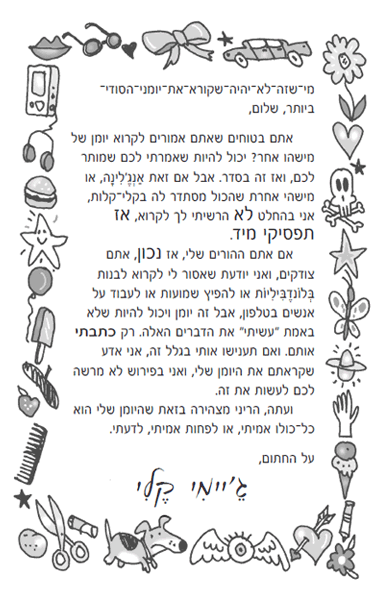 מי־שזה־לא־יהיה־שקורא־את־יומני־הסודי־
ביותר, שלום,
אתם בטוחים שאתם אמורים לקרוא יומן של
מישהו אחר? יכול להיות שאמרתי לכם שמותר
לכם, ואז זה בסדר. אבל אם זאת אַנְגֶ'לִינָה, או
מישהי אחרת שהכול מסתדר לה בקלי־קלות,
אני בהחלט לא הרשיתי לך לקרוא, אז
תפסיקי מיד.
אם אתם ההורים שלי, אז נכון, אתם
צודקים, ואני יודעת שאסור לי לקרוא לבנות
בְּלוֹנדֶבִּילִיוֹת או להפיץ שמועות או לעבוד על
אנשים בטלפון, אבל זה יומן ויכול להיות שלא
באמת "עשיתי" את הדברים האלה. רק כתבתי
אותם. ואם תענישו אותי בגלל זה, אני אדע
שקראתם את היומן שלי, ואני בפירוש לא מרשה
לכם לעשות את זה.
ועתה, הריני מצהירה בזאת שהיומן שלי הוא
כל־כולו אמיתי, או לפחות אמיתי, לדעתי.
על החתום,
גֶ'יימִי קֶלִי